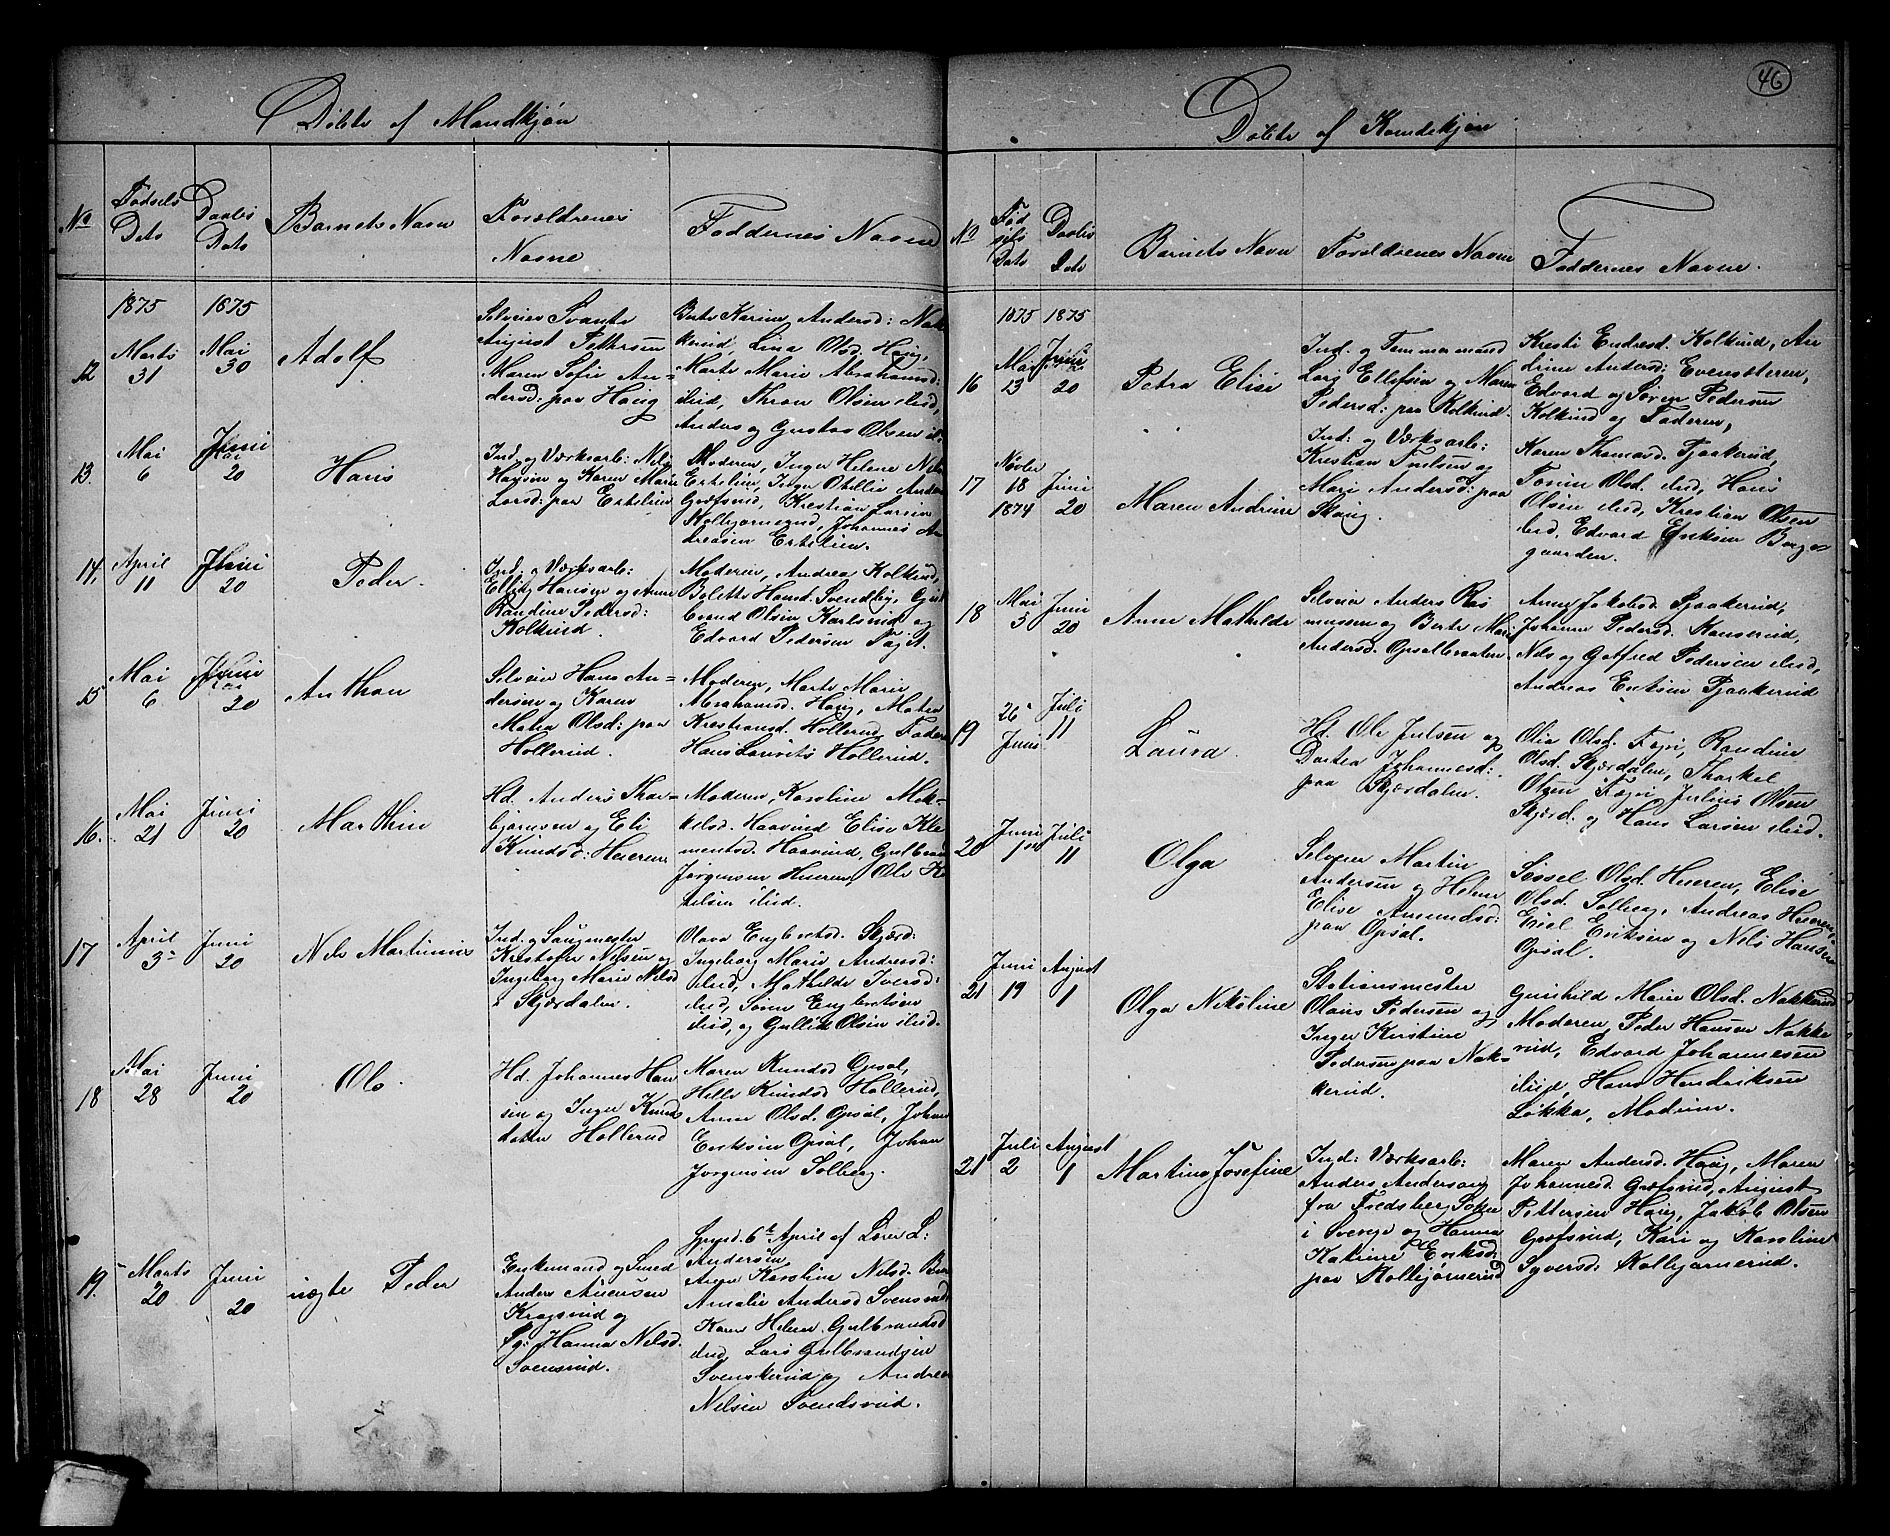 46
Döbte af Mandkjøn
No
Fødsels Dato
Daabs Dato
Barnets Navn
Forældrenes Navne
Faddernes Navne
1875
1875
12
Marts 31
Mai 30
Adolf
Selveier Svante
August Pettersen
Maren Sofie An-
dersd: paa Haug
Berte Karine Andersd: Nak
kerud, Lina Olsd. Haug,
Marte Marie Abrahamsd:
ibid, Thron Olsen ibid,
Anders og Gustav Olsen ib.
13.
Mai 6
Juni 20
Hans
Ind. og Værksarb: Nils
Hansen og Karen Marie
Larsd: paa Ertelien
Moderen, Inger Helene Nils
Ertelien, Inger Otillie Anders
Græfsrud, Krestian Larsen
Kolbjørnsrud, Johannes An
dreasen Ertelien.
14,
April 11
Juni 20
Peder.
Ind. og Værksarb:
Elling Hansen og Anne
Randine Pedersd:
Kolkind.
Moderen, Andrea Kolkind,
Bolette Hansd. Svendby, Gul
brand Olsen Karlsrud og
Edvard Pedersen
15
Mai 6
Juni 20
Anthon
Selveier Hans An-
dersen og Karen
Matea Olsd: paa
Hollerud.
Moderen, Marte Marie
Abrahamsd. Haug, Matea
Krestiansd. Hollerud, Fader
Hans Laurits Hollerud.
16.
Mai 21
Juni 20
Marthin
Hd. Anders Thor-
bjørnsen og Eli
Knudsd: Heieren
Moderen, Karoline Mik-
kelsd. Haavind Elise Kle
mentsd. Haavind, Gulbran
Jørgensen Heieren, Ole K
ibid.
17
April 3
Juni 20
Nils Martinius
Ind. og Saugmester
Kristofer Nilsen og
Ingeborg Marie Nilsd
i Skjærdalen.
Olava Engebretsd. Skjærd:
Ingeborg Marie Andresd:
ibid, Mathilde Iversd:
ibid, Søren Engebretsen
ibid, og Gullik Olsen ibid.
18
Mai 28
Juni 20
Ole
Hd. Johannes Han
sen og Inger Knuds
datter Hollerud
Maren Knudsd Opsal,
Helle Knudsd Hollerud,
Anne Olsd. Opsal, Johan
Eriksen Opsal, Johan
Jørgensen Solberg.
19.
Marts 20
Juni 20
uægte Peder
Enkemand og Smed
Anders Anensen
Kragsrud og
Pg: Hanna Nilsd.
Svensrud.
6te April af Lærer L:
Andersen
Anne Karoline Nilsd.
Amalie Andersd Svensrud
Karen Helene Gulbrandsd
ibid, Lars Gulbrandsen
Svenskerud og Andreas
Nilsen Svendsrud.
Döbte af Kvindekjøn
No
Fødsels Dato
Daabs Dato
Barnets Navn
Forældrenes Navne
Faddernes Navne.
1875
1875
16
Mai 13
Juni 20
Petra Elise
Ind. og Tømmermand
Lars Ellefsen og Maren
Pedersd: paa Kolkind.
Kresti Endresd. Kolkind, An
drine Andersd: Evensteren,
Edvard og Søren Pedersen
Kolkind og Faderen,
17
Novbr 18 1874
Juni 20
Maren Andrine
Ind: og Værksarb:
Krestian
Mari Andersd: paa
Haug.
Karen Thomasd. Fjaakerud,
Torine Olsd. ibid, Hans
Olsen ibid, Krestian Olsen
ibid, Edvard Eriksen Borge-
gaarden.
18
Mai 5
Juni 20
Anne Mathilde
Selveier Anders Ras
mussen og Berte Mari
Andersd. Opsalbraaten
Anne Jakobsd. Fjaakerud,
Johanne Pedersd. Kanserud,
Nils og Gotfred Pedersen ibid,
Andreas Eriksen Fjaakerud
19
26 Juni
Juli 11
Laura.
Hd. Ole Julsen og
Dortea Johannesd:
paa Skjærdalen.
Olia Olsd. Fegri, Randine
Olsd. Skjærdalen, Thorkel
Olsen Fegri Julius Olsen
Skjærd. og Hans Larsen ibid.
20
Juni 1
Juli 11
Olga
Selveier Martin
Andersen og Helene
Elise Amundsd:
paa Opsal.
Sissel Olsd. Heieren, Elise
Olsd. Solberg, Andreas Heieren,
Eriksen og Nils Hansen
Opsal.
21
Juni 19
August 1
Olga Nikoline
Stationsmester
Olaus Pedersen og
Inger Kirstine
Pedersen paa Nak-
kerud.
Gunhild Marie Olsd. Nakkerud
Moderen, Peder Hansen Nakke
rud, Edvard Johannesen
ibid, Hans Hendriksen
Løkka, Modum.
21
Juli 2
August 1
Martine Josefine
Ind: Værksarb:
Anders Anderson
fra Fredsberg Sokken
i Sverge og Hanna
Katrine Eriksd:
paa Kolbjørnerud
Maren Andersd. Haug, Maren
Johannesd. Græfsrud, August
Pettersen Haug, Jakob Olsen
Græfsrud, Kari og Karoline
Syversd. Kolbjørnerud.